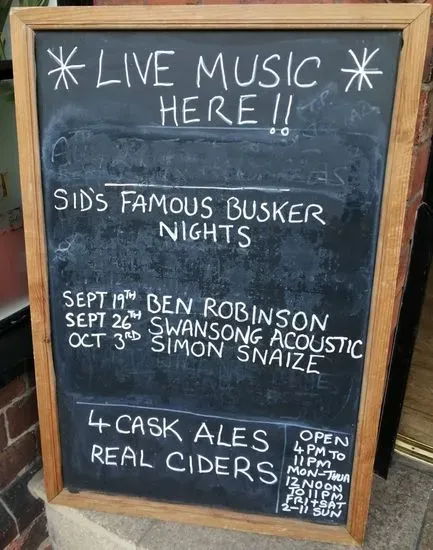 * LIVE MUSIC *
HERE!!
SID'S FAMOUS BUSKER
NIGHTS
SEPT 19TH BEN ROBINSON
SEPT 26TH SWANSONG ACOUSTIC
OCT 3RD SIMON SNAIZE
4 CASK ALES
REAL CIDERS
OPEN
4PM TO
11PM
MON-THUR
12 NOON
TO 11PM
FRI+SAT
2-11 SUN